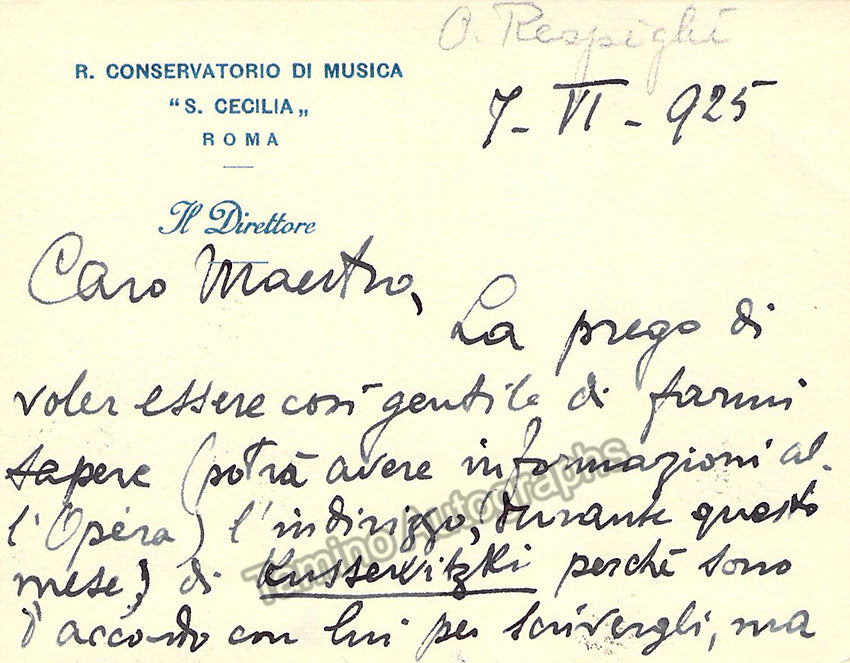 O. Respighi
R. CONSERVATORIO DI MUSICA
"S. CECILIA„
ROMA
7-VI-925
Il Direttore
Caro Maestro,
La prego di
voler essere così gentile di farmi
sapere (potrà avere informazioni al-
l'Opéra) l'indirizzo, (durante questo
mese) di Kussevitzki perchè sono
d'accordo con lui per scrivergli, ma
Tamino Autographs